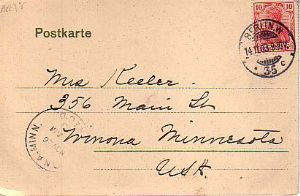 10 10
Postkarte
BERLIN.N.
35 c
Mrs Keeler.
356 Main St
Winona Minnesota
USA
A, MINN.